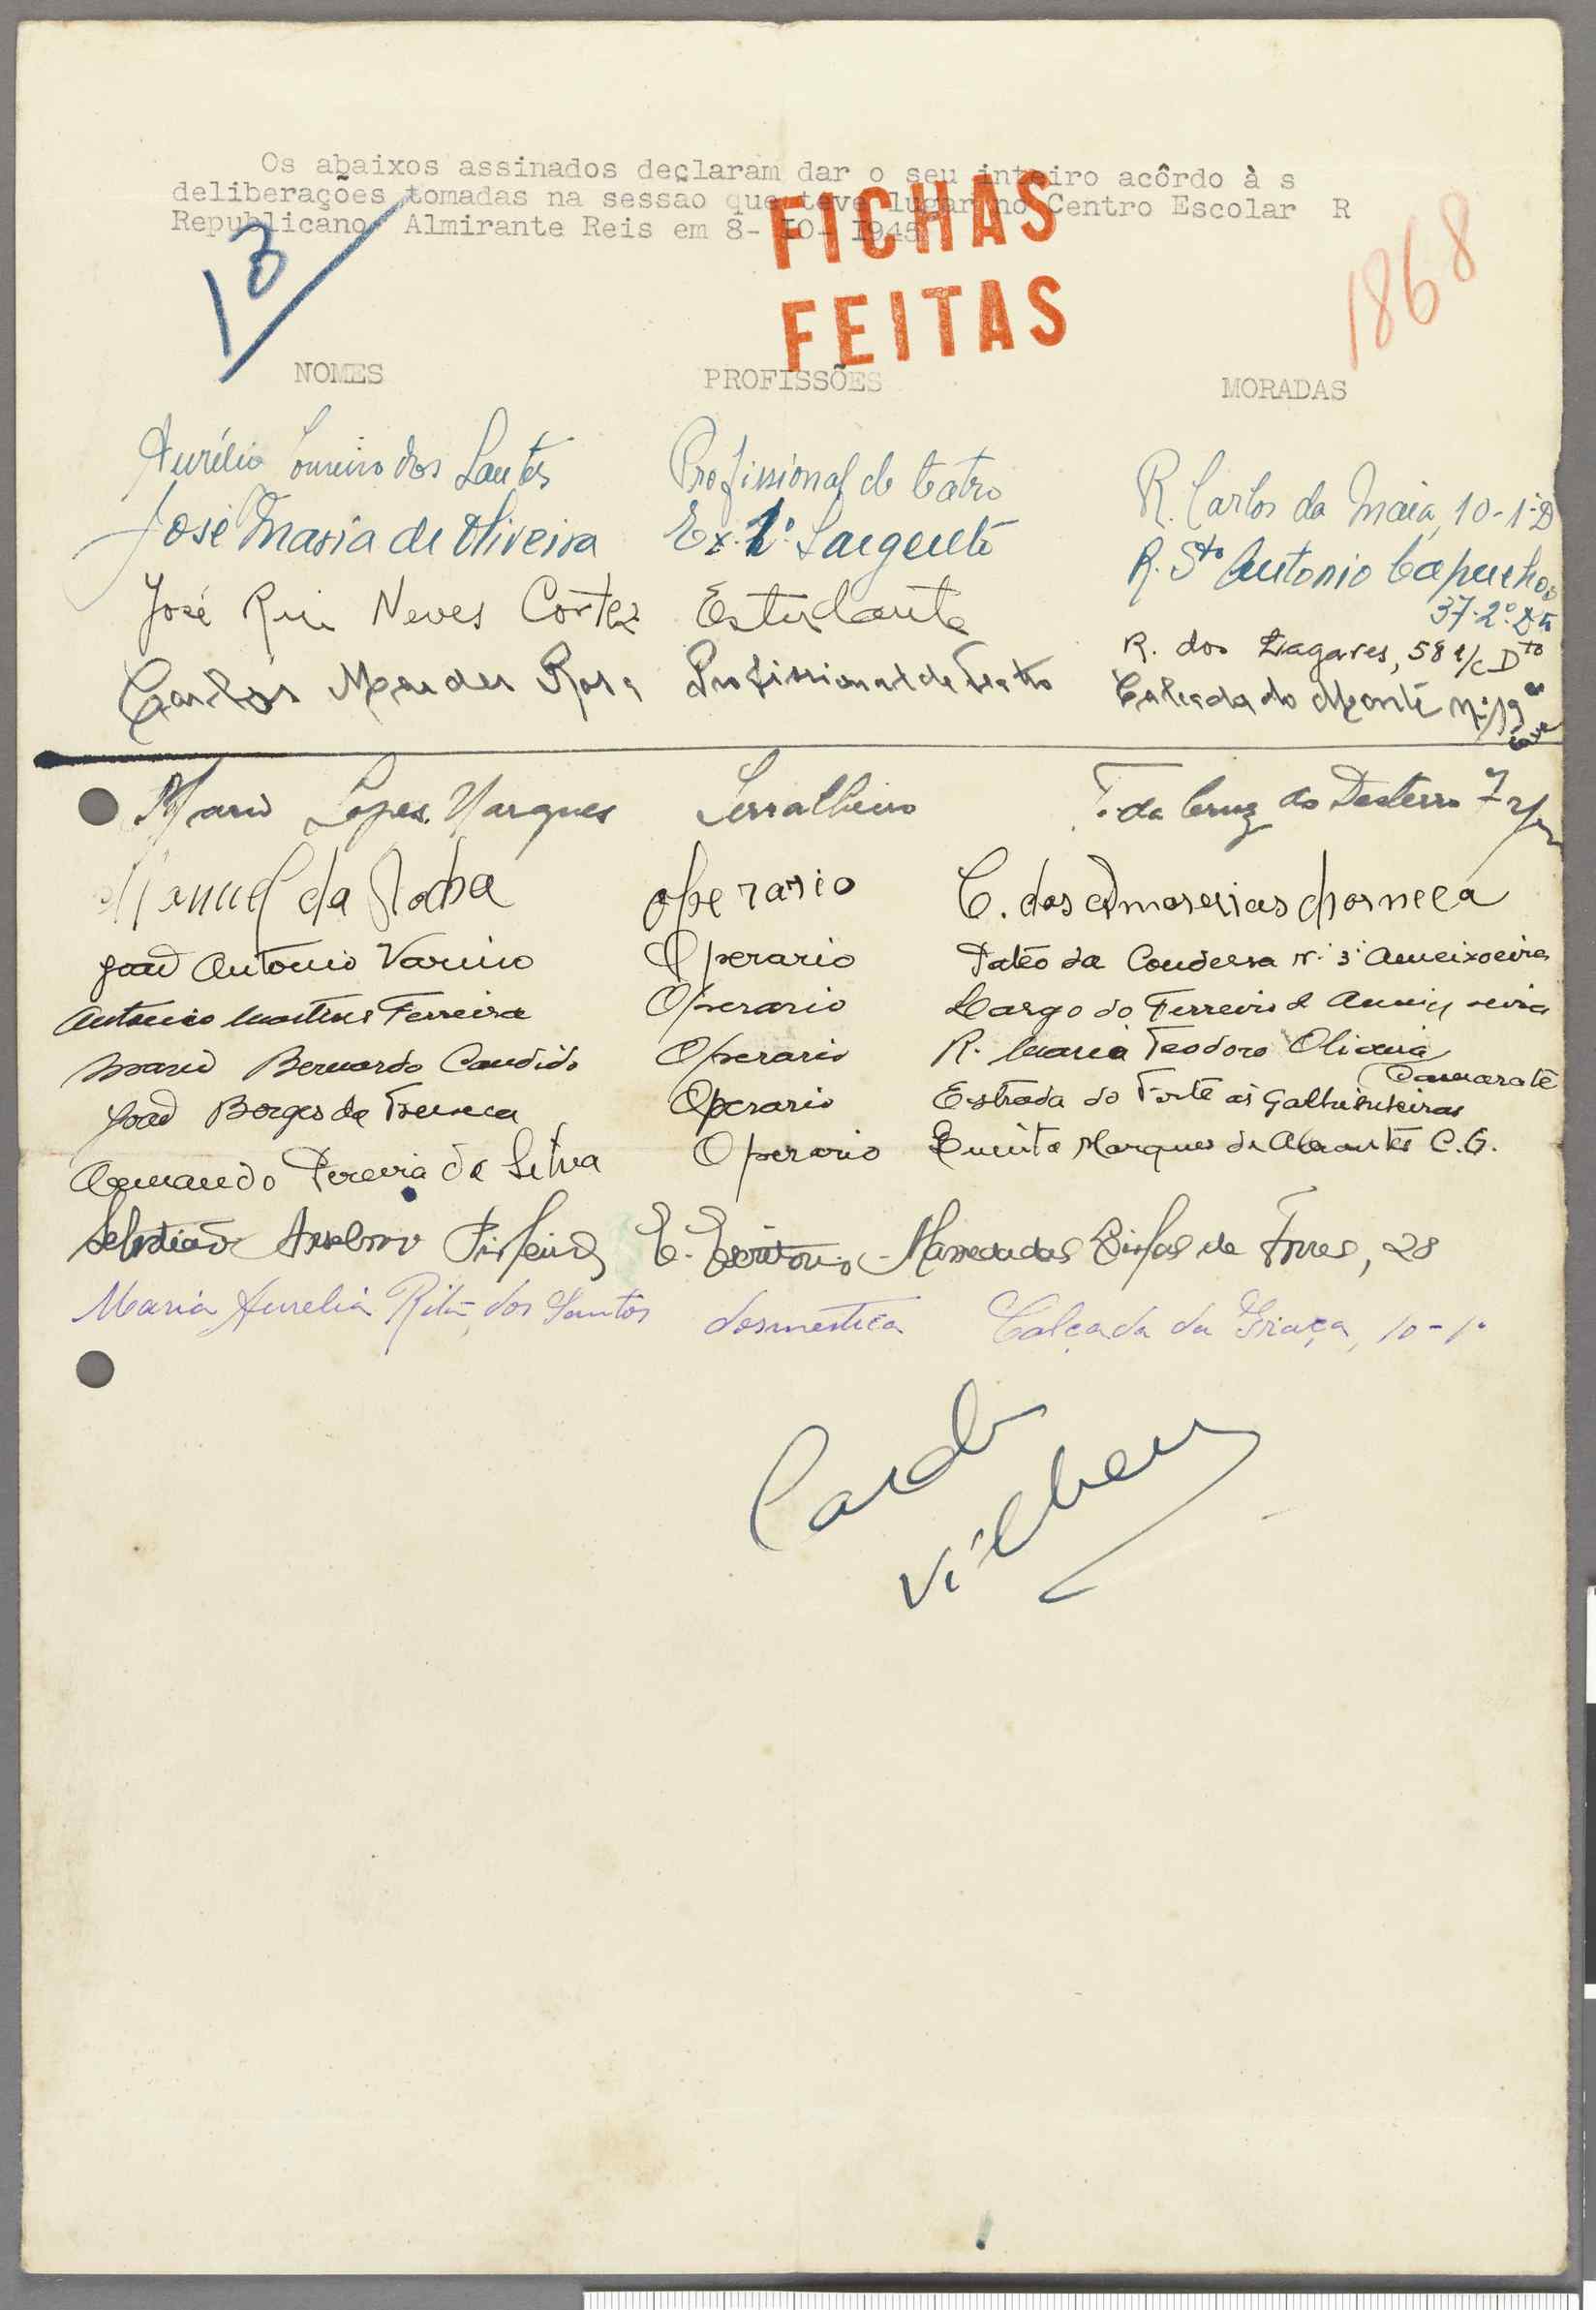 Os abaixos assinados declaram dar o seu inteiro acôrdo à s
deliberações tomadas na sessao que teve lugar no Centro Escolar R
Republicano Almirante Reis em 8- IO- 1945
FICHAS
FEITAS
13
1868
NOMES PROFISSÕES MORADAS
Aurélio Loureiro dos Santos Profissional de teatro R. Carlos da Maia, 10-1º D
José Maria de Oliveira Ex. 1º Sargento R. Sto Antonio Capuchos
37-2º Dto
José Rui Neves Cortez Estudante R. dos Lagares, 58 r/c Dto
Carlos Mendes Rosa Profissional de Teatro Calçada do Monte nº 19
Mario Lopes Marques Serralheiro T. da Cruz do Desterro 7
Manuel da Rocha operario C. das Amoreiras Charneca
João Antonio Varino Operario Patéo da Condessa Nº 3 Ameixoeira
Antonio Martins Ferreira Operario Largo do Terreiro
Mario Bernardo Candido Operario R. Maria Teodoro Oliveira
Camarate
João Borges da Fonseca Operario Estrada do Forte ás Galhinheiras
Armando Pereira da Silva Operario Quinta Marques de Abrantes C.G.
Sebastião Anselmo E. Escritorio de Torres, 28
Maria Aurelia Rita dos Santos dosmestica Calçada da Graça, 10-1º